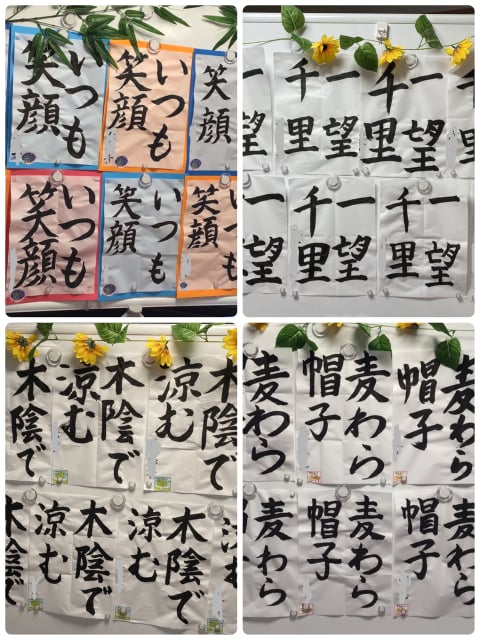 いつも
笑顔
いつも
笑顔
笑顔
いつも
笑顔
いつも
笑顔
いつも
笑顔
一望
一望
千里
一望
千里
一望
一望
千里
一望
千里
木陰で
木陰で
涼む
木陰で
涼む
木陰で
木陰で
涼む
木陰で
涼む
麦わら
麦わら
帽子
麦わら
帽子
麦わら
麦わら
帽子
麦わら
帽子